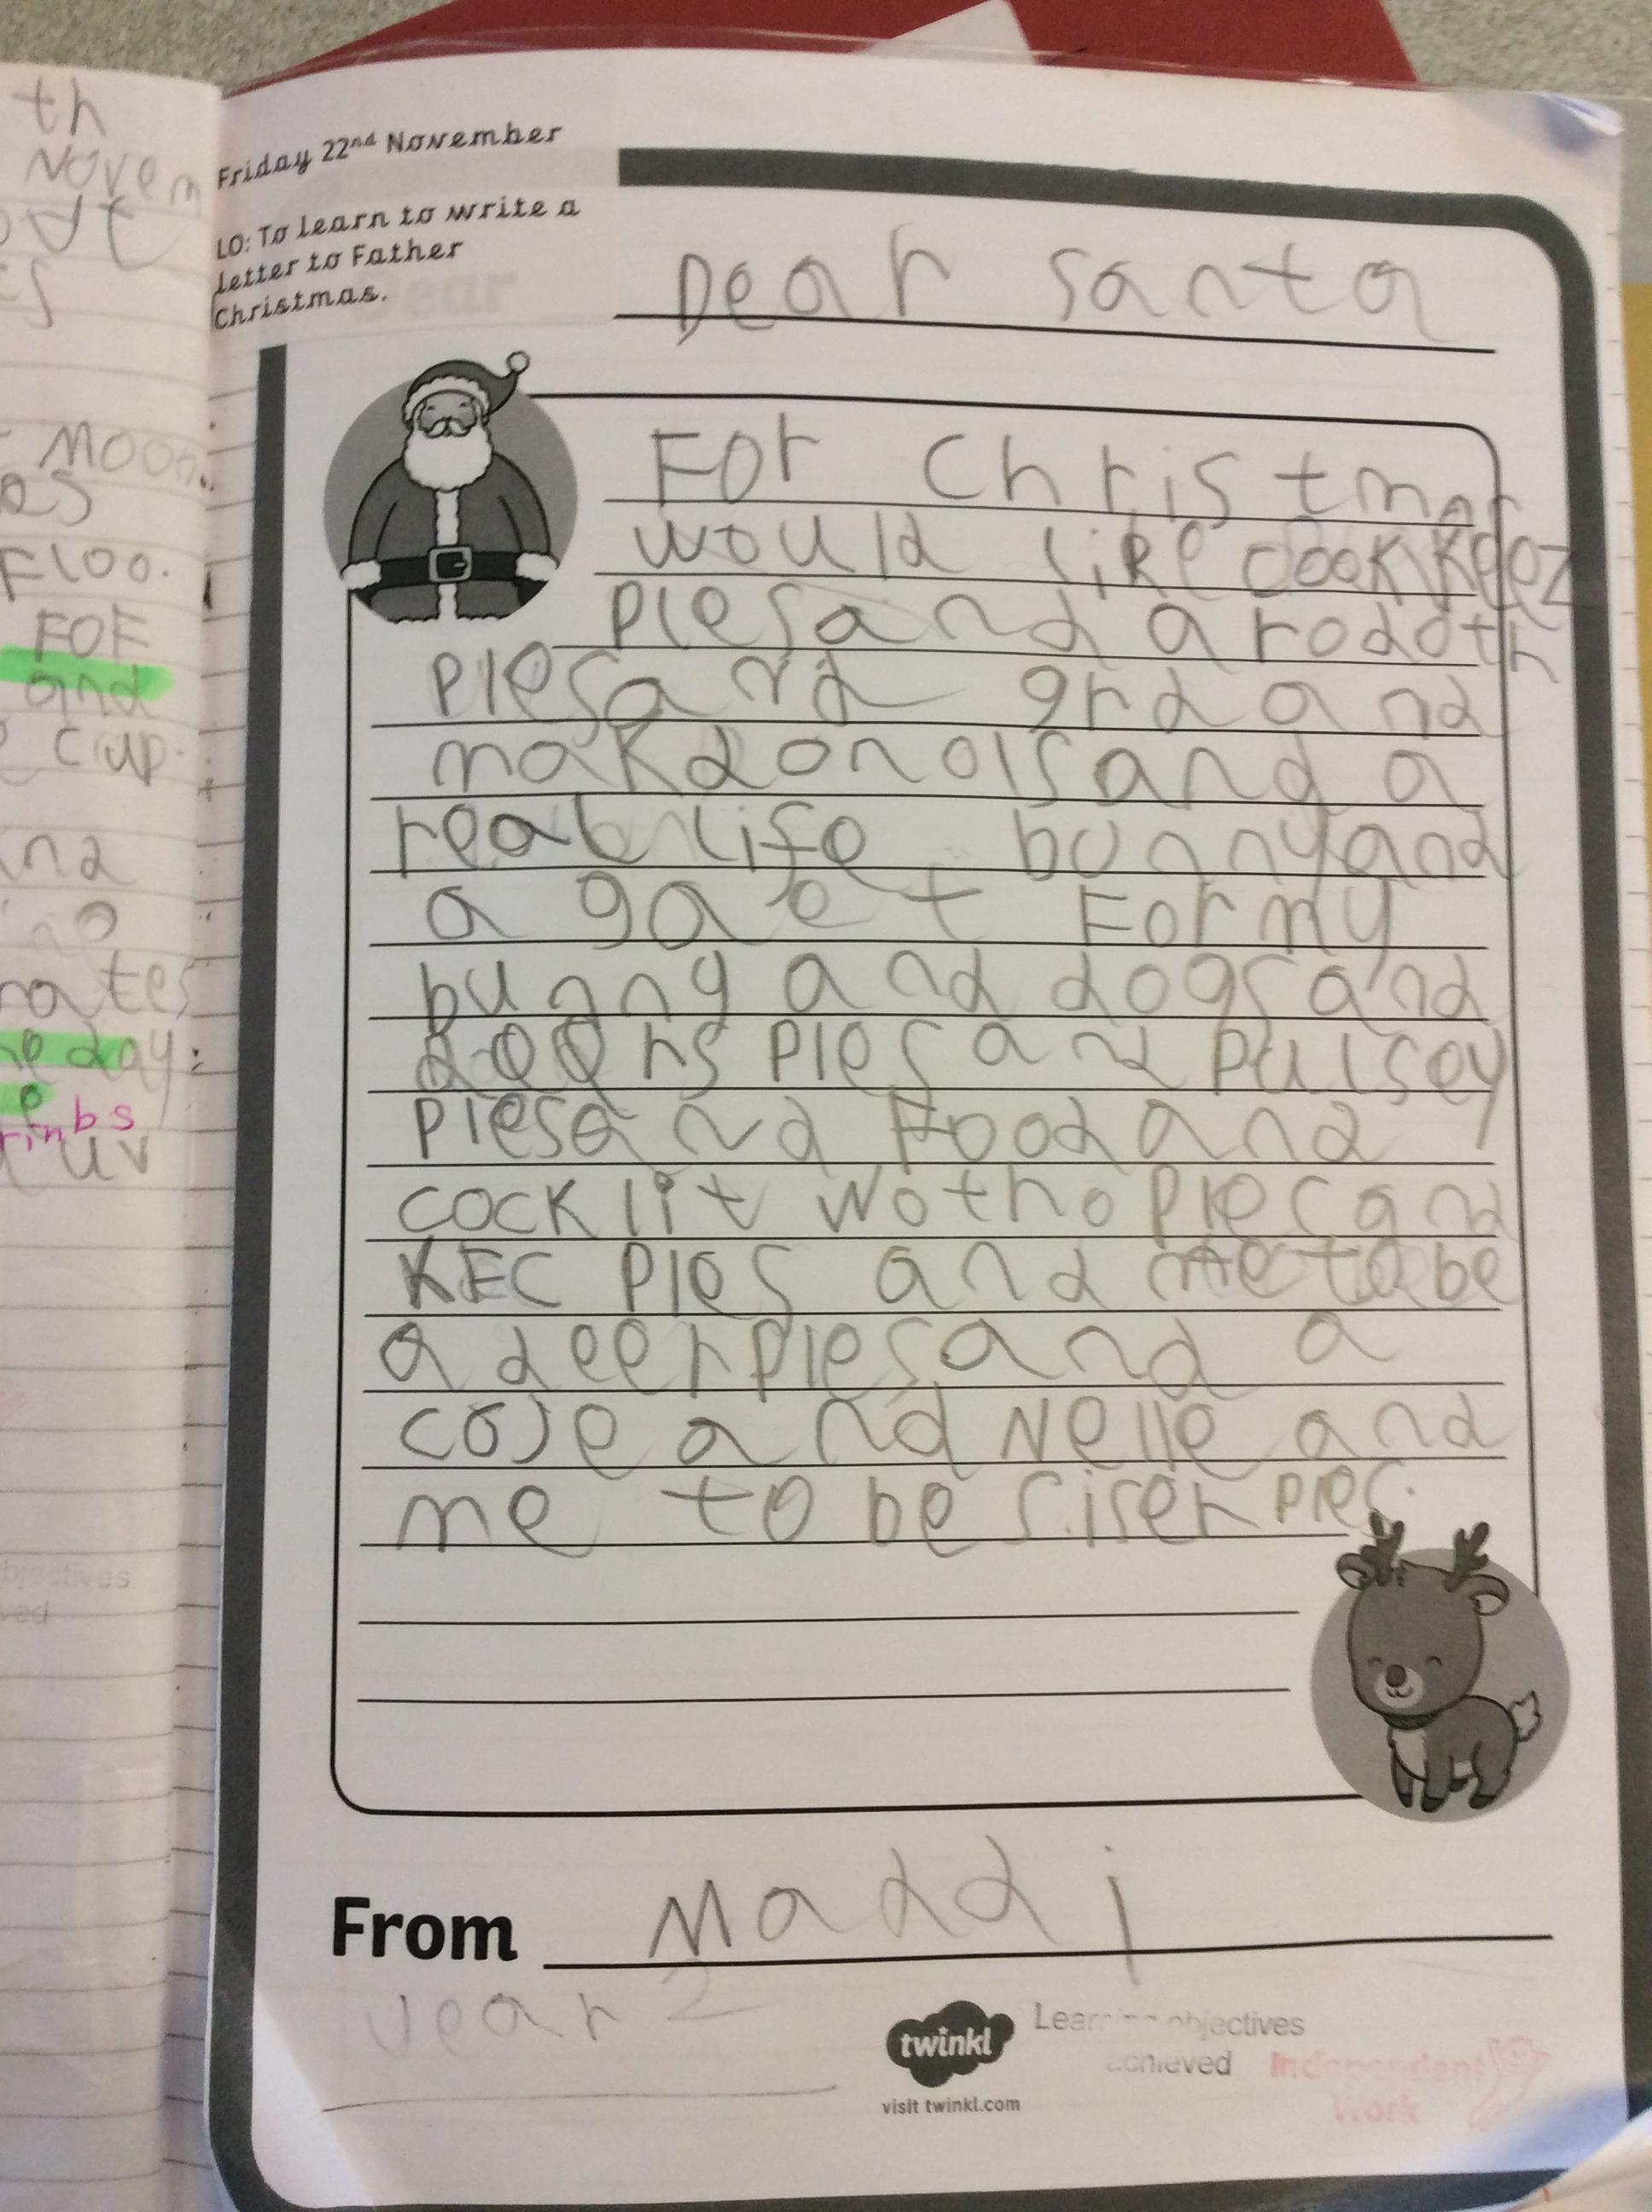 th
Novem
Moon.
es
Floo.
FOF
and
cup.
Friday 22nd November
LO: To learn to write a
letter to Father
Christmas.
Dear Santa
For Christmas
would like cookkeez
Plesand a rodoth
Plesand grd and
makdonolsand a
real life bunnyand
a gaet Formy
bunny and dogsand
deers Ples and Pulsey
Plesand Food and
cocklit wotho Plesand
KEC Ples and me to be
a deerplesand a
cose and Nelle and
me to be siser Ples.
From Maddi
Year 2
twinkl
visit twinkl.com
Learning objectives
achieved
Independent
Work